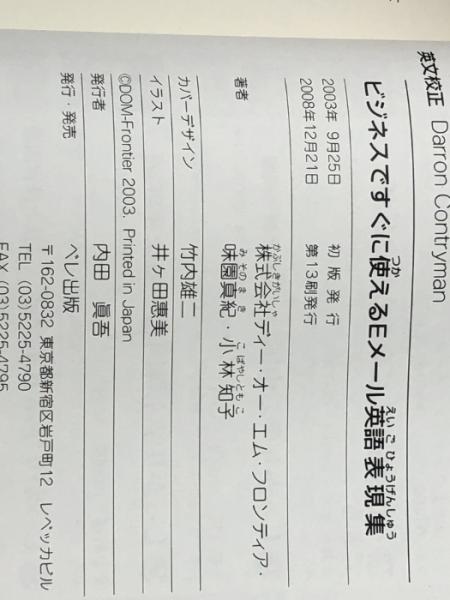 英文校正 Darron Contryman
ビジネスですぐに使えるEメール英語表現集
つか
えいごひょうげんしゅう
2003年 9月25日 初版発行
2008年12月21日 第13刷発行
著者
かぶしきがいしゃ
株式会社ディー・オー・エム・フロンティア・
みその まき こばやしともこ
味園真紀・小林知子
カバーデザイン 竹内雄二
イラスト 井ヶ田惠美
©DOM-Frontier 2003. Printed in Japan
発行者 内田 眞吾
発行・発売 ベレ出版
〒162-0832 東京都新宿区岩戸町12 レベッカビル
TEL (03)5225-4790
FAX (03)5225-4795